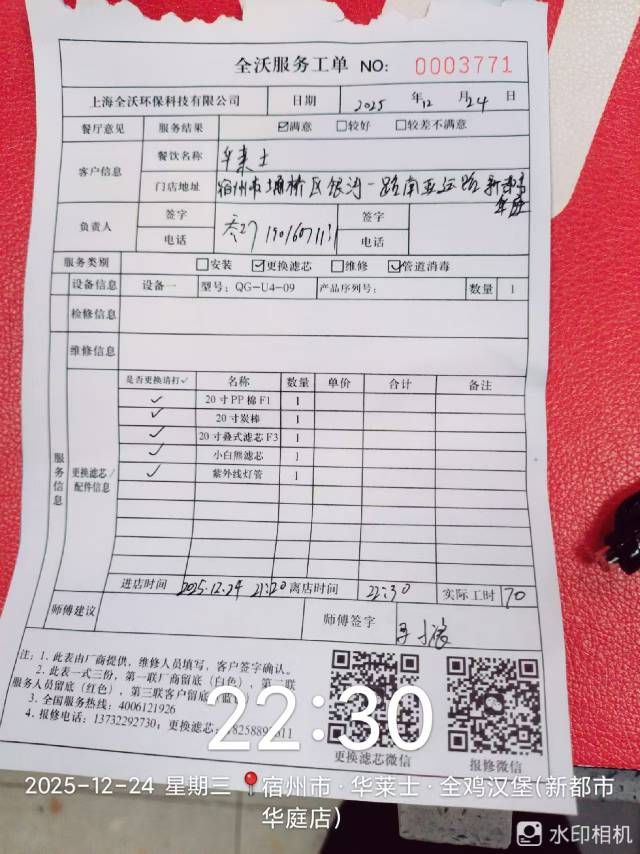 全沃服务工单 NO: 0003771
上海全沃环保科技有限公司 日期 2025 年 12 月 24 日
餐厅意见 服务结果 ☑满意 □较好 □较差不满意
客户信息 餐饮名称 华莱士
门店地址 宿州市埇桥区银河一路南亚运路新都市华庭
负责人 签字 签字
电话 电话
服务类别 □安装 ☑更换滤芯 □维修 ☑管道消毒
设备信息 设备一 型号: QG-U4-09 产品序列号: 数量 1
检修信息
维修信息
服务信息 更换滤芯/配件信息
是否更换请打✓ 名称 数量 单价 合计 备注
✓ 20寸PP棉F1 1
✓ 20寸炭棒 1
✓ 20寸叠式滤芯F3 1
✓ 小白熊滤芯 1
✓ 紫外线灯管 1
进店时间 2025.12.24 21:20 离店时间 22:30 实际工时 70
师傅建议 师傅签字
注: 1. 此表由厂商提供, 维修人员填写, 客户签字确认。
2. 此表一式三份, 第一联厂商留底(白色), 第二联
服务人员留底(红色), 第三联客户留底
3. 全国服务热线: 4006121926
4. 报修电话: 13732292730; 更换滤芯:
更换滤芯微信 报修微信
22:30
2025-12-24 星期三 宿州市·华莱士·全鸡汉堡(新都市
华庭店)
水印相机